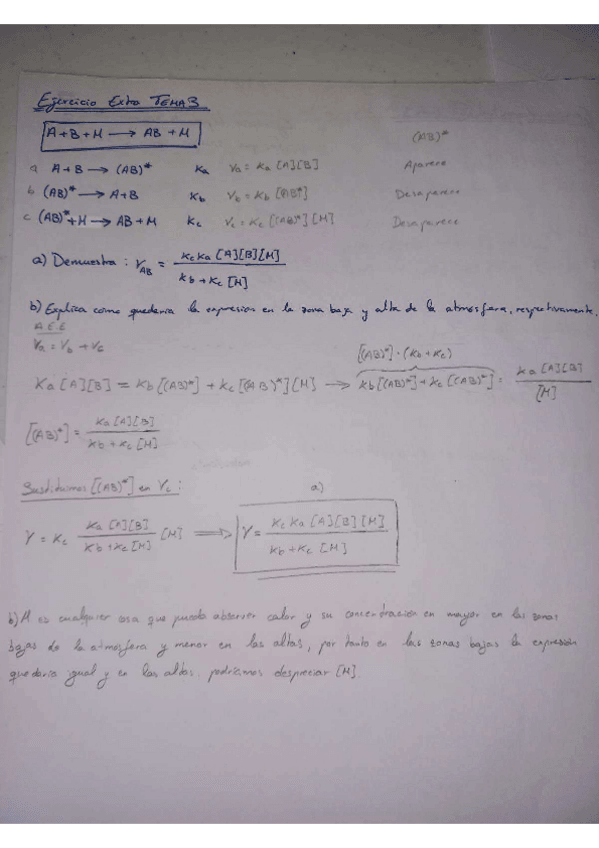 Ejercicio Extra TEMA 3
A+B+M → AB+M
(AB)*
a A+B → (AB)* Ka Va = Ka [A][B] Aparece
b (AB)* → A+B Kb Vb = Kb [(AB)*] Desaparece
c (AB)*+M → AB+M Kc Vc = Kc [(AB)*][M] Desaparece
a) Demuestra: V_AB = KcKa [A][B][M] / Kb + Kc [M]
b) Explica como quedaría la expresion en la zona baja y alta de la atmosfera, respectivamente.
A.E.E
Va = Vb + Vc
[(AB)*]·(Kb+Kc)
Ka [A][B] = Kb[(AB)*] + Kc[(AB)*][M] → Kb[(AB)*] + Kc[(AB)*] = Ka [A][B] / [M]
[(AB)*] = Ka [A][B] / Kb + Kc [M]
Sustituimos [(AB)*] en Vc:
a)
V = Kc Ka [A][B] / Kb + Kc [M] [M] ⟹ V = Kc Ka [A][B][M] / Kb + Kc [M]
b) M es cualquier cosa que pueda absorver calor y su concentración en mayor en las zonas
bajas de la atmosfera y menor en las altas, por tanto en las zonas bajas la expresión
quedaría igual y en las altas, podríamos despreciar [M].